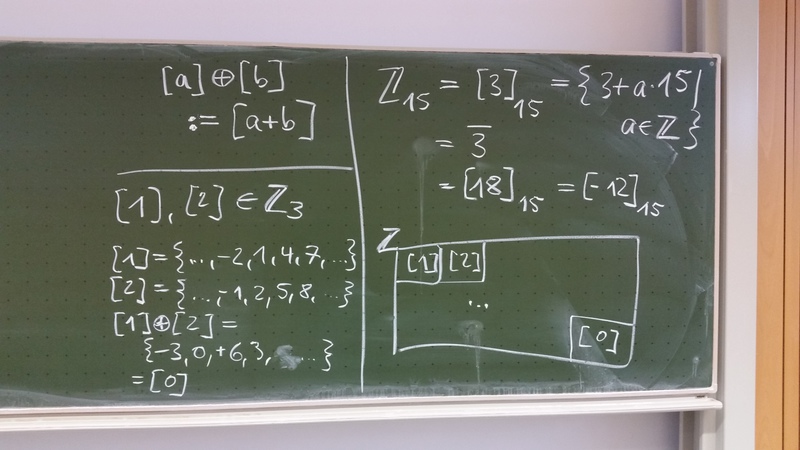 [a]⊕[b]
:= [a+b]
[1], [2] ∈ ℤ₃
[1]={..., -2, 1, 4, 7, ...}
[2]={..., -1, 2, 5, 8, ...}
[1]⊕[2]=
{-3, 0, +6, 3, ...}
=[0]
ℤ₁₅ = [3]₁₅ = {3+a·15|
a∈ℤ}
= 3̅
= [18]₁₅ = [-12]₁₅
ℤ
[1] [2]
...
[0]